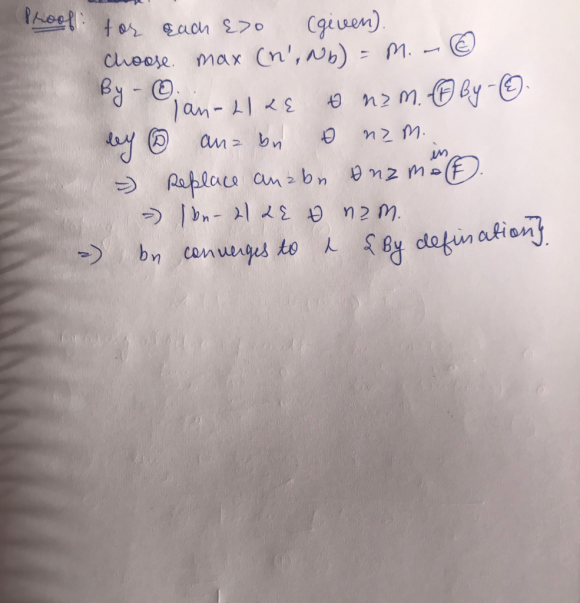 Proof: for each ε>0 (given).
choose. max (n', Nb) = M. - Ⓔ
By - Ⓔ.
|an - λ| < ε ∀ n ≥ M. - Ⓕ By - Ⓔ.
by Ⓓ an = bn ∀ n ≥ M.
⇒ Replace an = bn ∀ n ≥ M in Ⓕ.
⇒ |bn - λ| < ε ∀ n ≥ M.
⇒ bn converges to λ {By defination}.